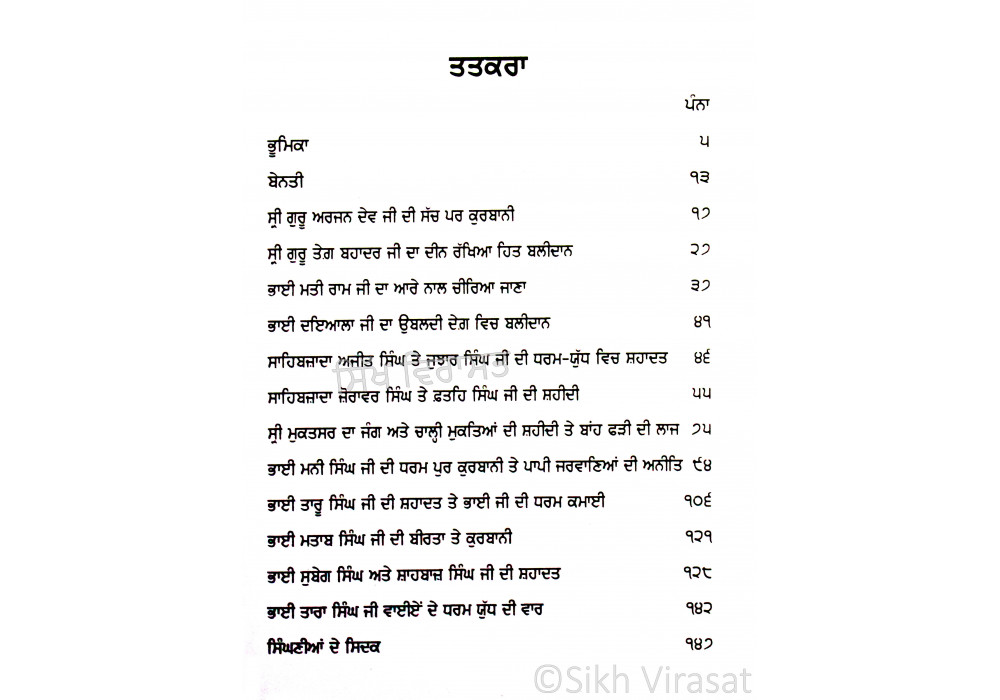 ਤਤਕਰਾ
ਪੰਨਾ
ਭੂਮਿਕਾ ੫
ਬੇਨਤੀ ੧੩
ਸ੍ਰੀ ਗੁਰੂ ਅਰਜਨ ਦੇਵ ਜੀ ਦੀ ਸੱਚ ਪਰ ਕੁਰਬਾਨੀ ੧੭
ਸ੍ਰੀ ਗੁਰੂ ਤੇਗ਼ ਬਹਾਦਰ ਜੀ ਦਾ ਦੀਨ ਰੱਖਿਆ ਹਿਤ ਬਲੀਦਾਨ ੨੭
ਭਾਈ ਮਤੀ ਰਾਮ ਜੀ ਦਾ ਆਰੇ ਨਾਲ ਚੀਰਿਆ ਜਾਣਾ ੩੭
ਭਾਈ ਦਇਆਲਾ ਜੀ ਦਾ ਉਬਲਦੀ ਦੇਗ਼ ਵਿਚ ਬਲੀਦਾਨ ੪੧
ਸਾਹਿਬਜ਼ਾਦਾ ਅਜੀਤ ਸਿੰਘ ਤੇ ਜੁਝਾਰ ਸਿੰਘ ਜੀ ਦੀ ਧਰਮ-ਯੁੱਧ ਵਿਚ ਸ਼ਹਾਦਤ ੪੬
ਸਿੱਖ ਵਿਰਾਸਤ
ਸਾਹਿਬਜ਼ਾਦਾ ਜ਼ੋਰਾਵਰ ਸਿੰਘ ਤੇ ਫ਼ਤਹਿ ਸਿੰਘ ਜੀ ਦੀ ਸ਼ਹੀਦੀ ੫੫
ਸ੍ਰੀ ਮੁਕਤਸਰ ਦਾ ਜੰਗ ਅਤੇ ਚਾਲ੍ਹੀ ਮੁਕਤਿਆਂ ਦੀ ਸ਼ਹੀਦੀ ਤੇ ਬਾਂਹ ਫੜੀ ਦੀ ਲਾਜ ੭੫
ਭਾਈ ਮਨੀ ਸਿੰਘ ਜੀ ਦੀ ਧਰਮ ਪੁਰ ਕੁਰਬਾਨੀ ਤੇ ਪਾਪੀ ਜਰਵਾਣਿਆਂ ਦੀ ਅਨੀਤਿ ੯੪
ਭਾਈ ਤਾਰੂ ਸਿੰਘ ਜੀ ਦੀ ਸ਼ਹਾਦਤ ਤੇ ਭਾਈ ਜੀ ਦੀ ਧਰਮ ਕਮਾਈ ੧੦੬
ਭਾਈ ਮਤਾਬ ਸਿੰਘ ਜੀ ਦੀ ਬੀਰਤਾ ਤੇ ਕੁਰਬਾਨੀ ੧੨੧
ਭਾਈ ਸੁਬੇਗ ਸਿੰਘ ਅਤੇ ਸ਼ਾਹਬਾਜ਼ ਸਿੰਘ ਜੀ ਦੀ ਸ਼ਹਾਦਤ ੧੨੮
ਭਾਈ ਤਾਰਾ ਸਿੰਘ ਜੀ ਵਾਈਏਂ ਦੇ ਧਰਮ ਯੁੱਧ ਦੀ ਵਾਰ ੧੪੨
ਸਿੰਘਣੀਆਂ ਦੇ ਸਿਦਕ ੧੪੭
©Sikh Virasat